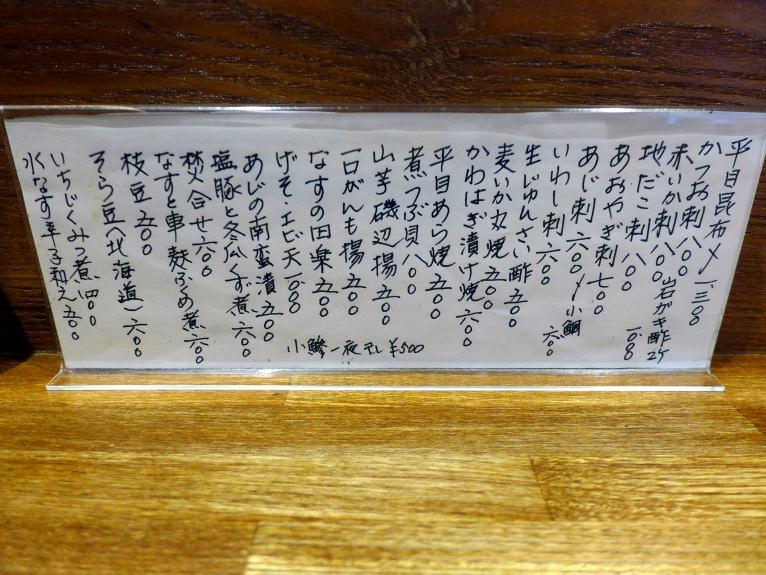 平目昆布〆 一、三〇〇
かつお刺 八〇〇
赤いか刺 八〇〇
岩がき酢 2ヶ 一、〇〇〇
地だこ刺 八〇〇
あおやぎ刺 七〇〇
あじ刺 六〇〇
〆小鯛 六〇〇
いわし刺 六〇〇
生じゅんさい酢 五〇〇
麦いか丸焼 五〇〇
かわはぎ漬け焼 六〇〇
平目あら焼 五〇〇
煮つぶ貝 八〇〇
山芋磯辺揚 五〇〇
一口がんも揚 五〇〇
なすの田楽 五〇〇
げそ・エビ天 一、〇〇〇
あじの南蛮漬 五〇〇
塩豚と冬瓜くず煮 六〇〇
焚合せ 六〇〇
なすと車麩ふくめ煮 六〇〇
枝豆 五〇〇
そら豆(北海道) 六〇〇
いちじくみつ煮 四〇〇
水なす辛子和え 五〇〇
小鰺一夜干し ¥500